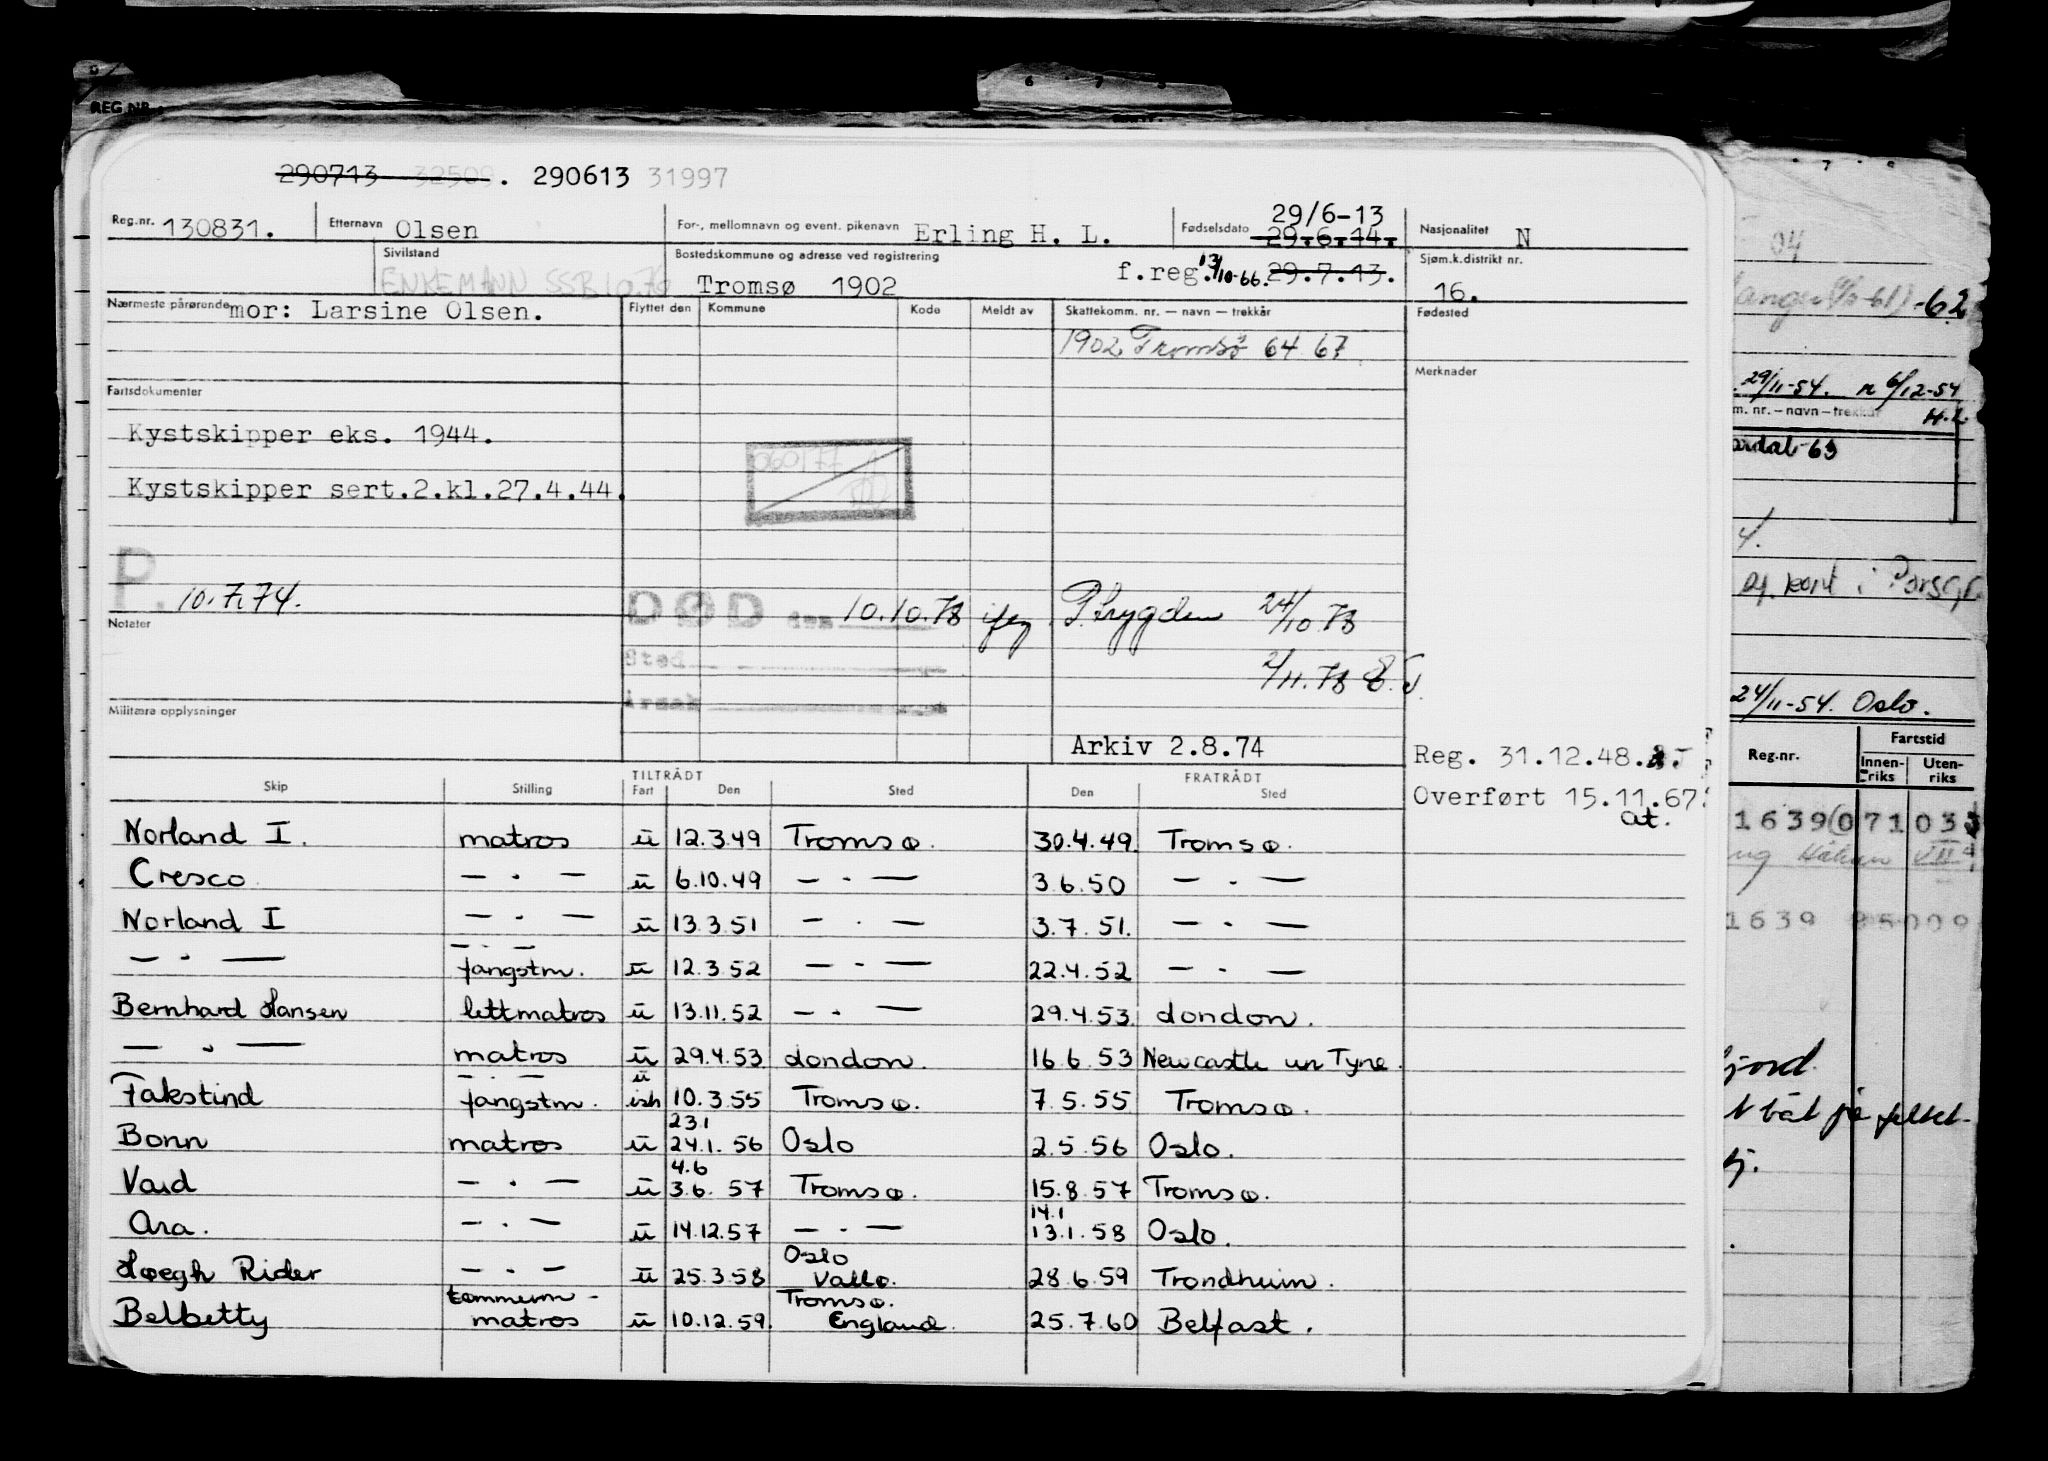 REG.NR.
290713 32509. 290613 31997
Reg.nr. 130831. Etternavn Olsen For-, mellomnavn og event. pikenavn Erling H. L. Fødselsdato 29/6-13 29.6.14. Nasjonalitet N
Sivilstand ENKEMANN SSB 10.70 Bostedskommune og adresse ved registrering Tromsø 1902 f.reg. 13/10-66. 29.7.13. Sjøm.k.distrikt nr. 16.
Nærmeste pårørende mor: Larsine Olsen. Flyttet den Kommune Kode Meldt av Skattekomm. nr. — navn — trekkår Fødested
1902 Tromsø 64 67
Merknader
Fartsdokumenter
Kystskipper eks. 1944.
Kystskipper sert.2.kl.27.4.44.
P. 10.7.74.
DØD den 10.10.78 P.trygden 24/10 78
Notater
Sted
2/11.78
Årsak
Militære opplysninger
Arkiv 2.8.74
Reg. 31.12.48.
Overført 15.11.67.
at.
Skip Stilling TILTRÅDT Fart Den Sted FRATRÅDT Den Sted
Norland I. matros u 12.3.49 Tromsø. 30.4.49. Tromsø.
Cresco — · — u 6.10.49 — · — 3.6.50 — · —
Norland I — · — u 13.3.51 — · — 3.7.51. — · —
— · — — · — fangstm. u 12.3.52 — · — 22.4.52 — · —
Bernhard Hansen lettmatros u 13.11.52 — · — 29.4.53. London.
— · — matros u 29.4.53 London. 16.6.53 Newcastle un Tyne.
Fakstind — · — fangstm. u ish 10.3.55 Tromsø. 7.5.55 Tromsø.
Bonn matros u 23.1 24.1.56 Oslo 2.5.56 Oslo.
Vard — · — u 4.6 3.6.57 Tromsø. 15.8.57 Tromsø.
Ara. — · — u 14.12.57 — · — 14.1 13.1.58 Oslo.
Høegh Rider — · — u 25.3.58 Oslo Vallø. 28.6.59 Trondheim.
Belbetty tømmerm - matros u 10.12.59. Tromsø. England. 25.7.60 Belfast.
04
-62
29/11-54. n 6/12-54
m. nr. — navn — trekkår H.L
ardal-63
4.
24/11-54. Oslo.
Reg.nr. Fartstid
Innen-riks Uten-riks
1639 071 033
1639 85009
fjord.
t båt på feltet.